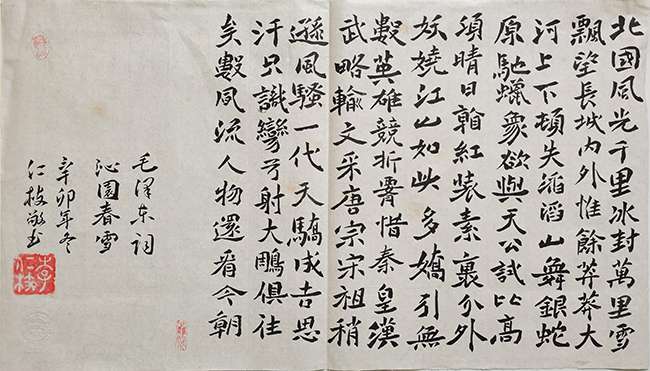 北國風光千里冰封萬里雪
飄望長城內外惟餘莽莽大
河上下頓失滔滔山舞銀蛇
原馳蠟象欲與天公試比高
須晴日看紅裝素裹分外
妖嬈江山如此多嬌引無
數英雄競折腰惜秦皇漢
武略輸文采唐宗宋祖稍
遜風騷一代天驕成吉思
汗只識彎弓射大鵰俱往
矣數風流人物還看今朝
毛澤东詞
沁園春雪
辛卯年冬
仁枝敬书
李仁枝